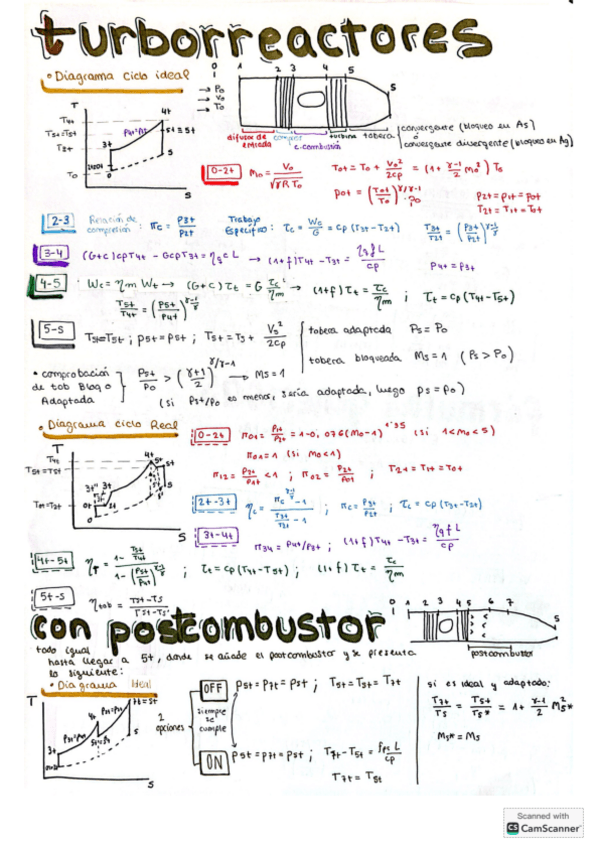 turborreactores
• Diagrama ciclo ideal
0 1 2 3 4 5 s
→ P₀
→ V₀
→ T₀
difusor de entrada
compresor
c. combustión
turbina
tobera
convergente (bloqueo en As)
o
convergente divergente (bloqueo en Ag)
T
T4t
T5t=Tst
T3t
T0
3t
4t
5t = st
s
P4t=P3t
S
0-2t M₀ = V₀/√γRT₀
T0t = T₀ + V₀²/2cp = (1 + γ-1/2 M₀²) T₀
P0t = (T0t/T₀)^γ/γ-1 · P₀
P2t = P1t = P0t
T2t = T1t = T0t
2-3 Relación de compresión: πc = P3t/P2t
Trabajo Específico: τc = Wc/G = cp (T3t - T2t)
T3t/T2t = (P3t/P2t)^γ-1/γ
3-4 (G+c)cpT4t - GcpT3t = ηq c L → (1+f)T4t - T3t = ηq f L/cp
P4t = P3t
4-5 Wc = ηm Wt → (G+c)τt = G τc/ηm → (1+f)τt = τc/ηm ; τt = cp (T4t - T5t)
T5t/T4t = (P5t/P4t)^γ-1/γ
5-s Tst = T5t ; P5t = Pst ; Tst = Ts + Vs²/2cp
tobera adaptada Ps = P₀
tobera bloqueada Ms = 1 (Ps > P₀)
• comprobación de tob Bloq o Adaptada } Pst/P₀ > (γ+1/2)^γ/γ-1 → Ms = 1
(si Pst/P₀ es menor, sería adaptada, luego ps = p₀)
• Diagrama ciclo Real
T
T4t
T5t=Tst
S
0-2t π01 = P1t/P0t = 1 - 0,076 (M₀-1)^1.35 (si 1<M₀<5)
π01 = 1 (si M₀<1)
π12 = P2t/P1t < 1 ; π02 = P2t/P0t ; T2t = T1t = T0t
2t-3t ηc = πc^γ-1/γ - 1 / T3t/T2t - 1 ; πc = P3t/P2t ; τc = cp (T3t - T2t)
3t-4t π34 = P4t/P3t ; (1+f)T4t - T3t = ηq f L/cp
4t-5t ηt = 1 - T5t/T4t / 1 - (P5t/P4t)^γ-1/γ ; τt = cp (T4t - T5t) ; (1+f) τt = τc/ηm
5t-s ηtob = Tst - Ts / Tst - Ts'
con postcombustor
0 1 2 3 4 5 6 7 s
postcombustor
todo igual
hasta llegar a 5t, donde se añade el postcombustor y se presenta
lo siguiente:
• Diagrama Ideal
T
3t
4t
7t = st
s
S
2 opciones
OFF P5t = P7t = Pst ; T5t = Tst = T7t
siempre se cumple
ON P5t = P7t = Pst ; T7t - T5t = fpc L/cp
T7t = Tst
si es ideal y adaptado:
T7t/Ts = T5t/Ts* = 1 + γ-1/2 Ms*²
Ms* = Ms
Scanned with
CS CamScanner